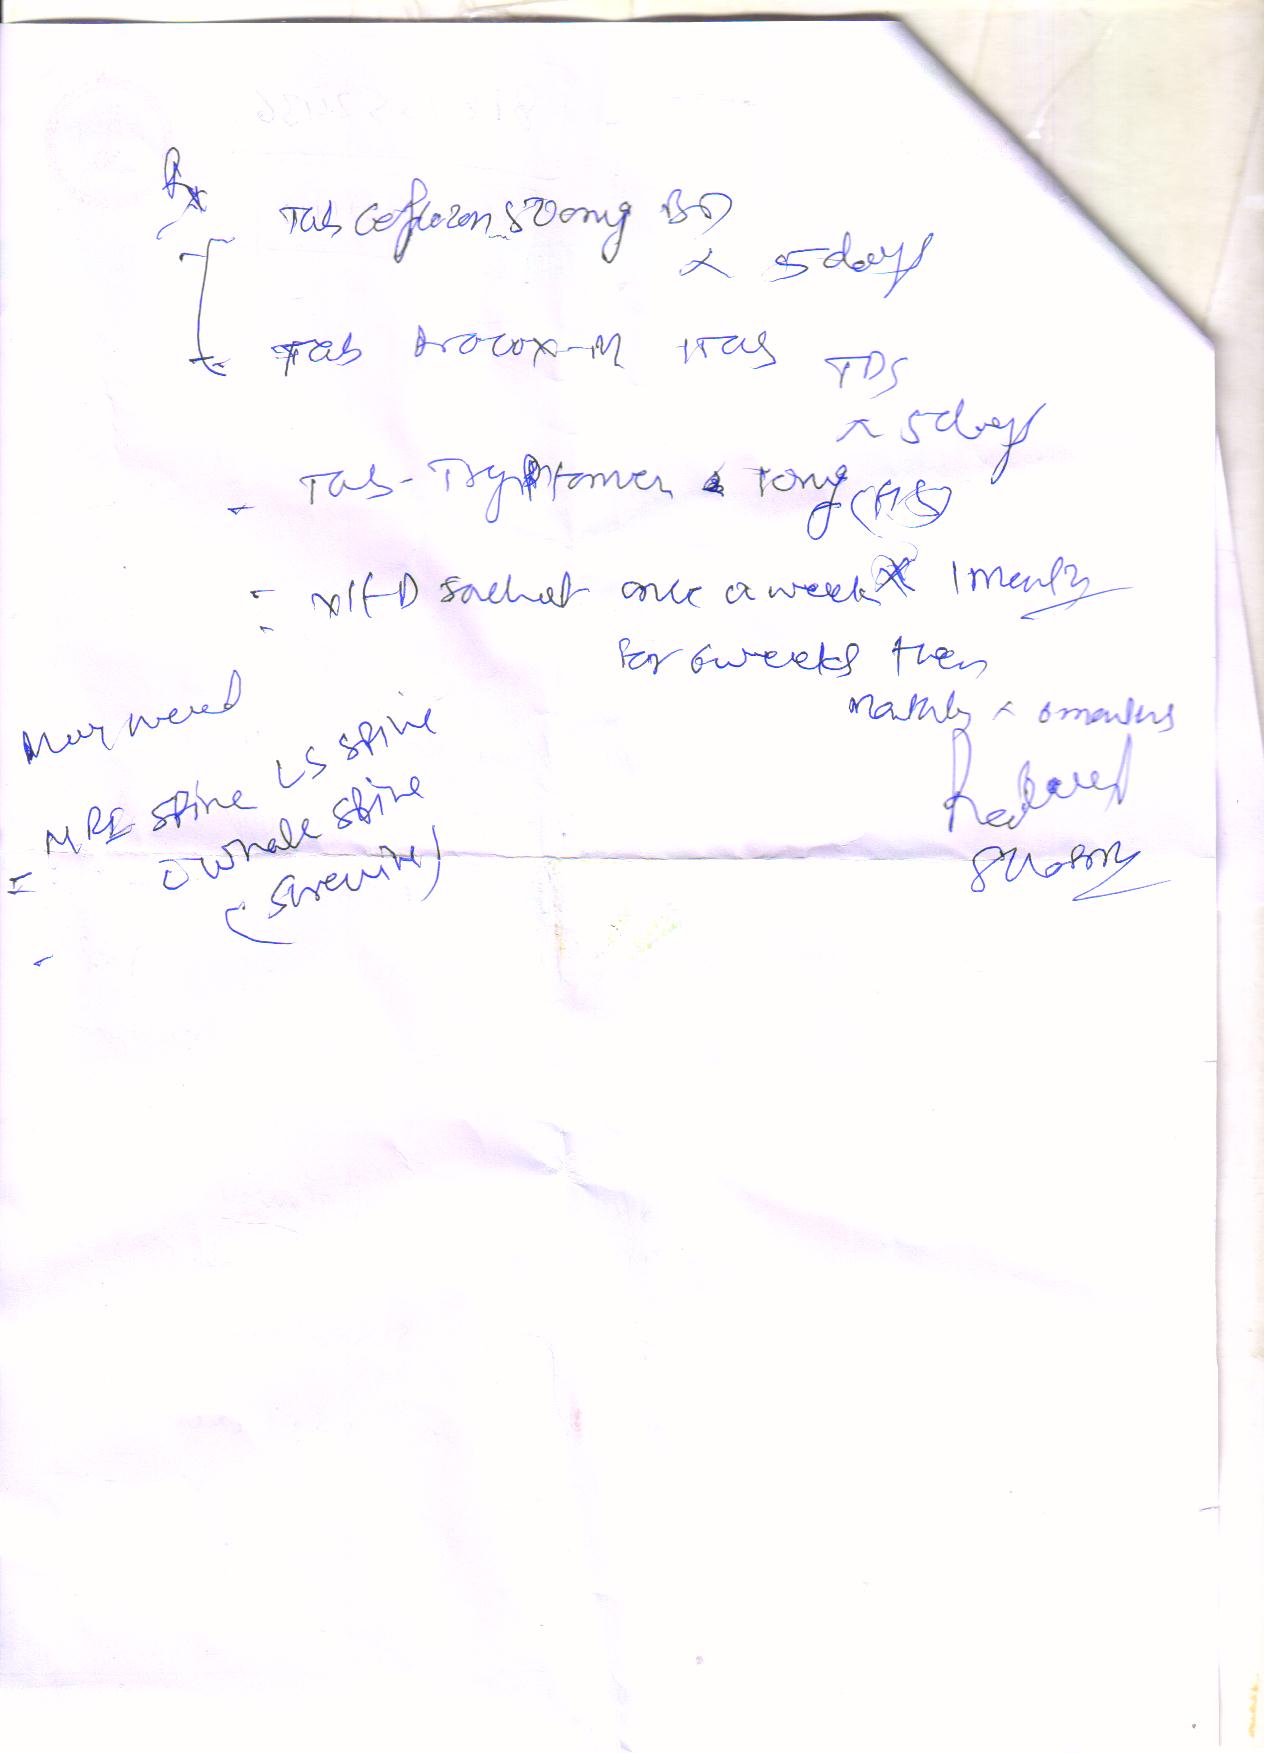 Rx
Tab Ceflozen 500mg BD
x 5 days
Tab 1Tab
TDS
x 5 days
Tab - Tryptomer 10mg (HS)
D Sachet once a week x 1 month
for 6 weeks then
monthly x 6 months
May need
MRI Spine LS Spine
whole Spine
(Screening)